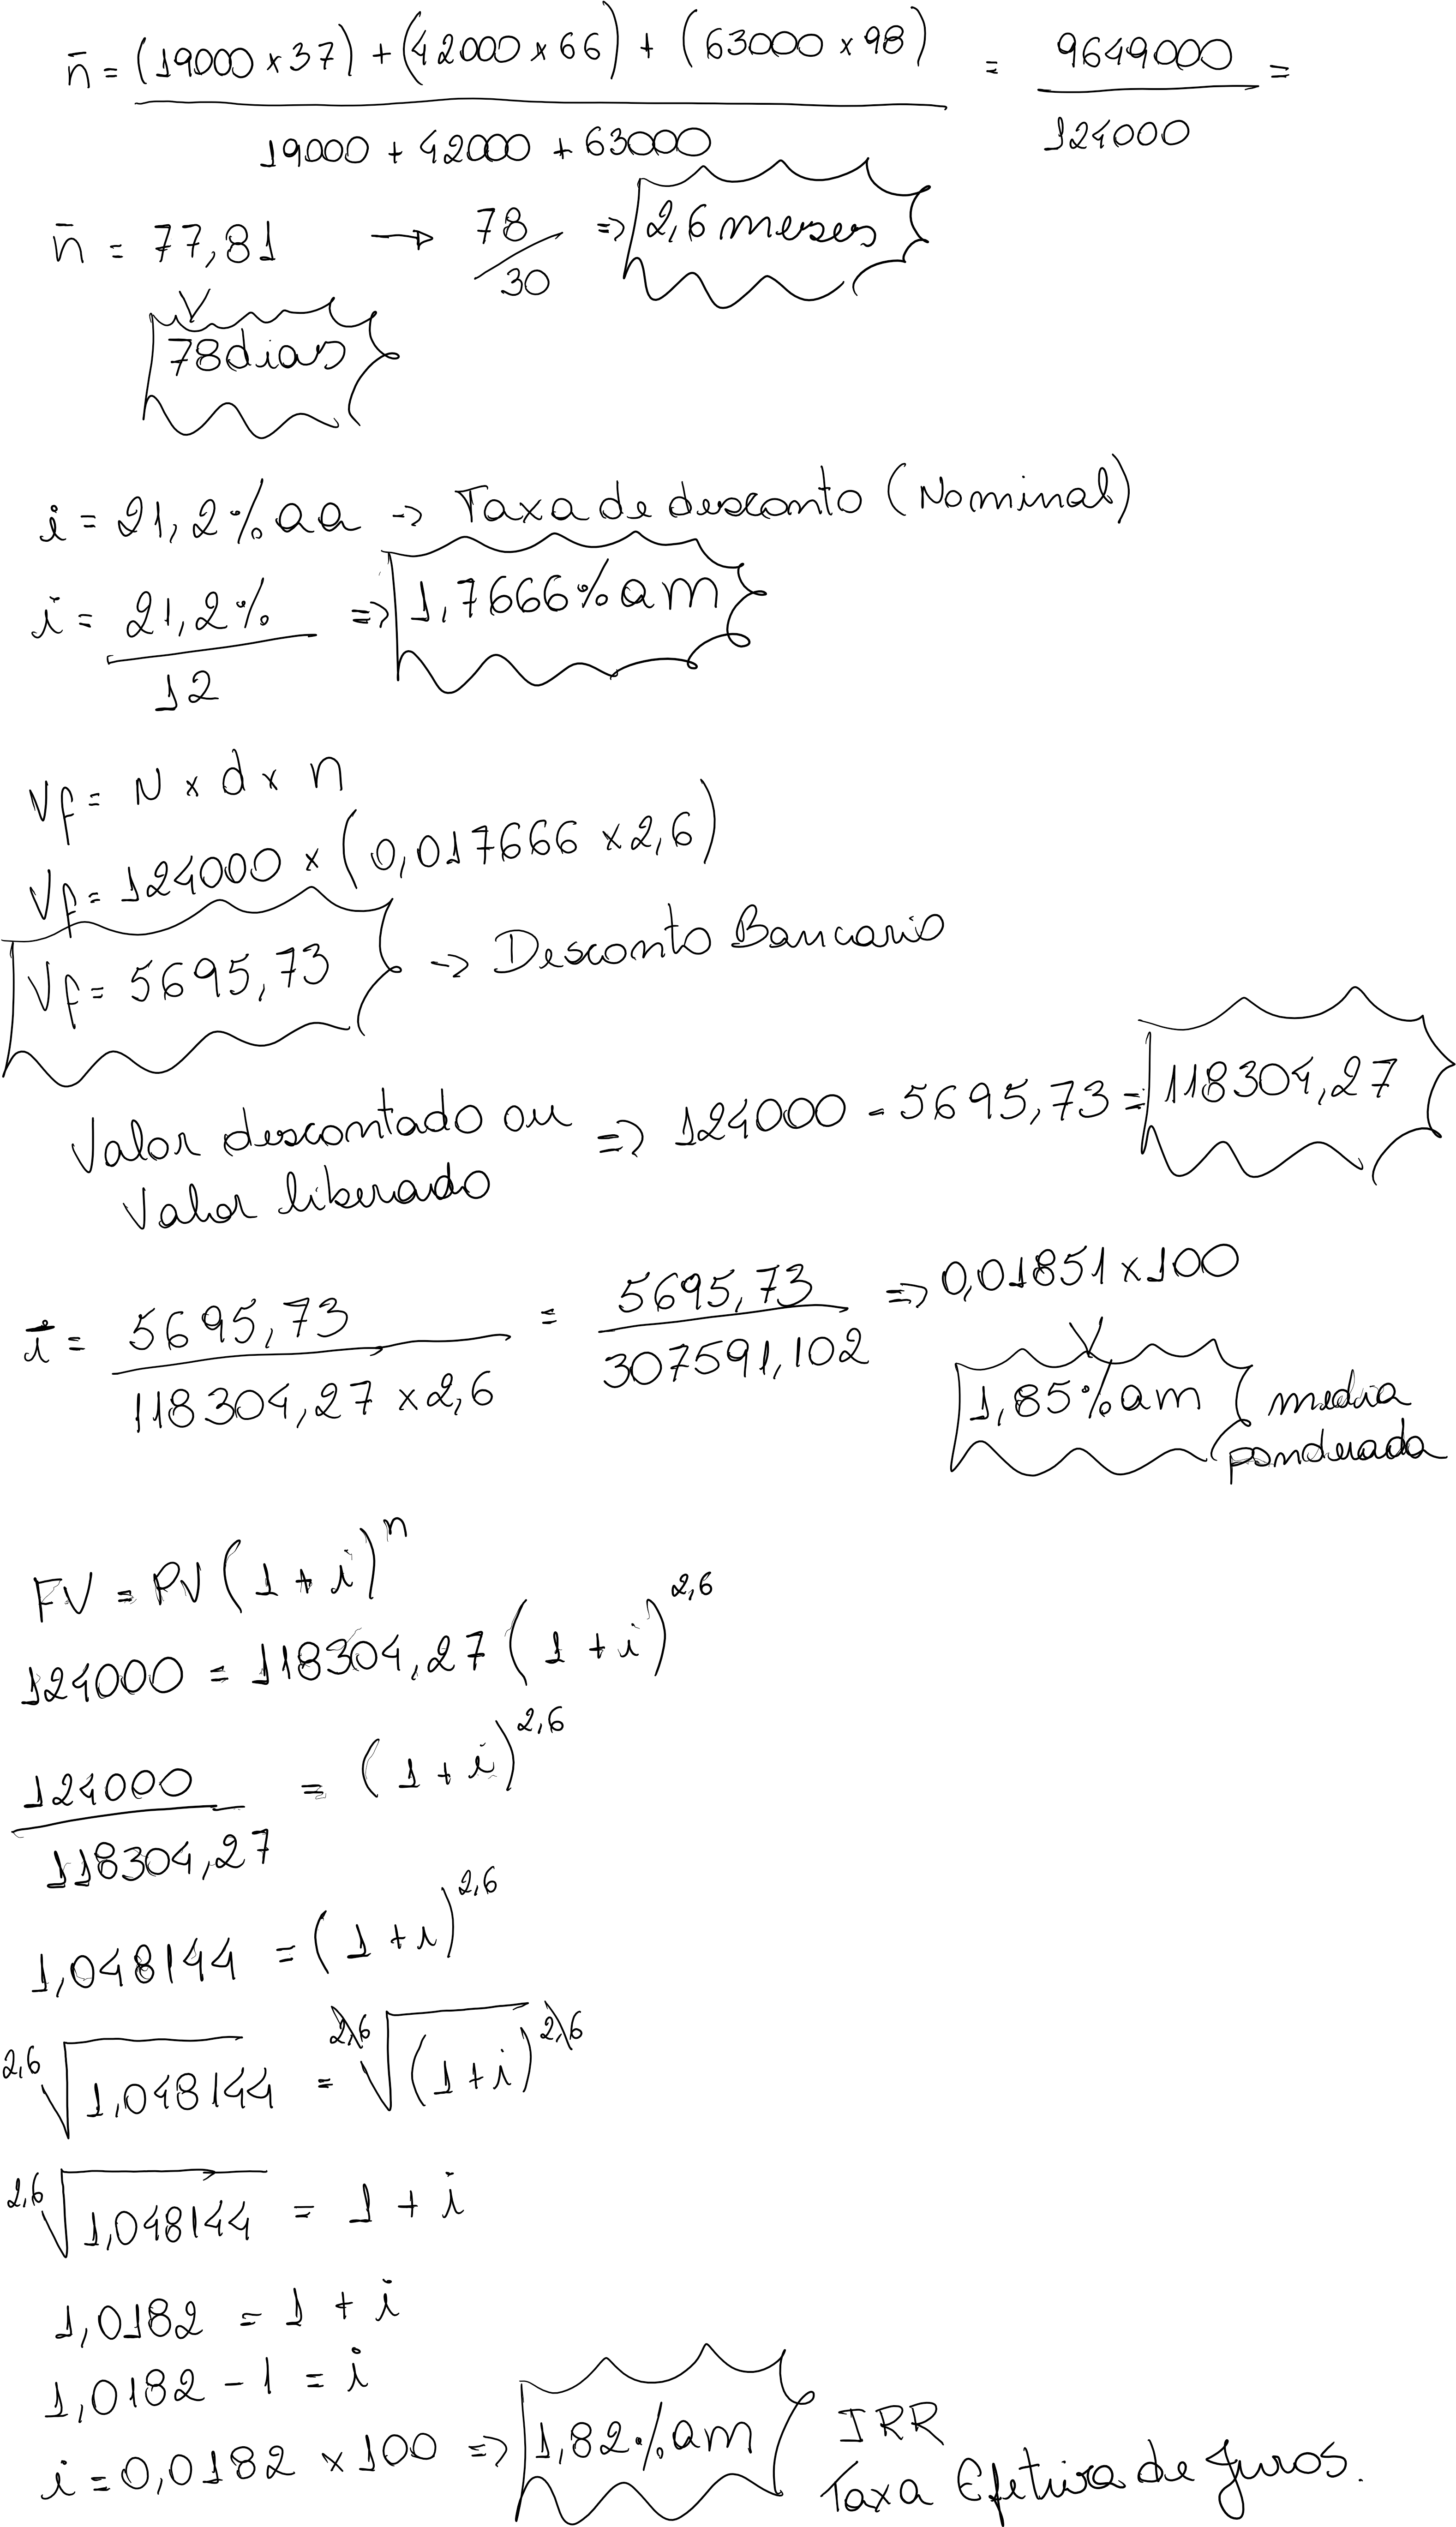 n̄ = (19000 x 37) + (42000 x 66) + (63000 x 98) = 9649000 =
19000 + 42000 + 63000 124000
n̄ = 77,81 → 78/30 ⇒ 2,6 meses
78 dias
i = 21,2% aa → Taxa de desconto (Nominal)
i = 21,2% ⇒ 1,7666% am
12
Vf = N x d x n
Vf = 124000 x (0,017666 x 2,6)
Vf = 5695,73 → Desconto Bancario
Valor descontado ou ⇒ 124000 - 5695,73 = 118304,27
Valor liberado
i = 5695,73 = 5695,73 ⇒ 0,01851 x 100
118304,27 x 2,6 307591,102
1,85% am media
ponderada
FV = PV (1 + i)^n
124000 = 118304,27 (1 + i)^2,6
124000 = (1 + i)^2,6
118304,27
1,048144 = (1 + i)^2,6
2,6√1,048144 = 2,6√(1+i)^2,6
2,6√1,048144 = 1 + i
1,0182 = 1 + i
1,0182 - 1 = i
i = 0,0182 x 100 ⇒ 1,82% am IRR
Taxa Efetiva de Juros.